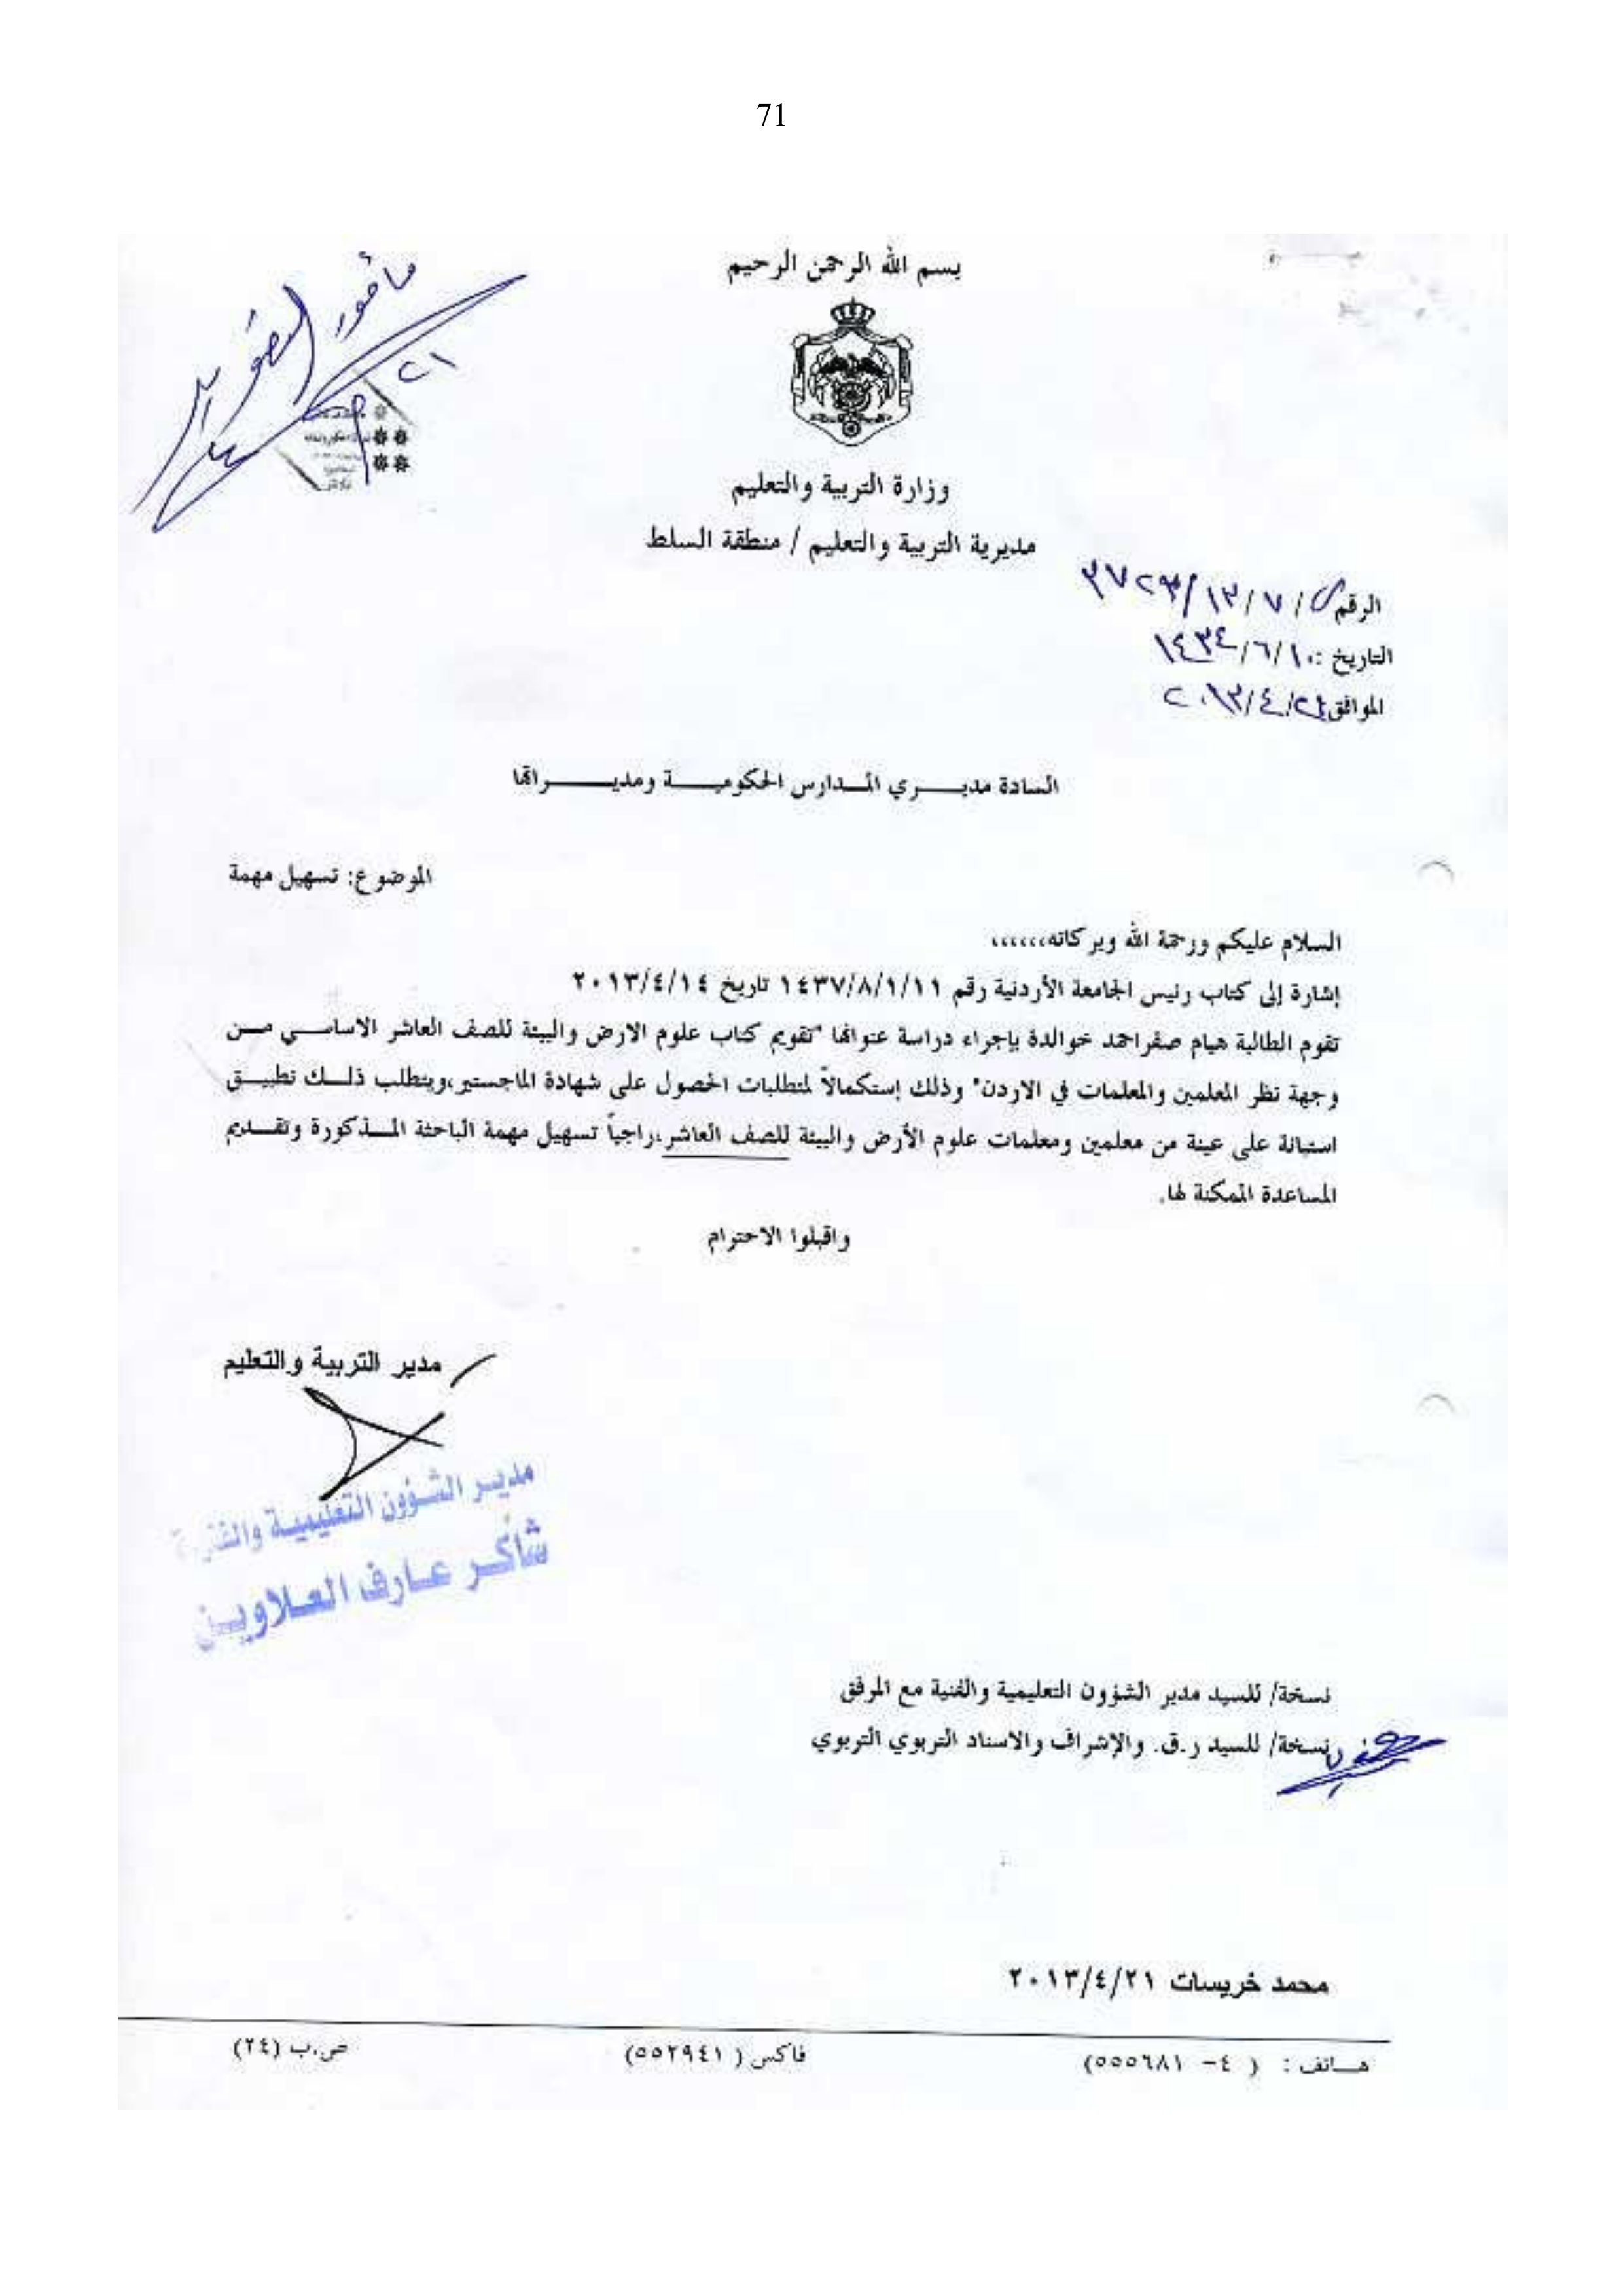 71
بسم الله الرحمن الرحيم
مأمور التصوير
وزارة التربية والتعليم
مديرية التربية والتعليم / منطقة السلط
الرقم /٧/١٣/٣٧٢٣
التاريخ :١٤٣٤/٦/١٠
الموافق ٢٠١٣/٤/٢١
السادة مديـــري المـدارس الحكوميـــة ومديـــــراتها
الموضوع: تسهيل مهمة
السلام عليكم ورحمة الله وبركاته،،،،،،
إشارة إلى كتاب رئيس الجامعة الأردنية رقم ١٤٣٧/٨/١/١١ تاريخ ٢٠١٣/٤/١٤
تقوم الطالبة هيام صقراحمد خوالدة بإجراء دراسة عنوانها "تقويم كتاب علوم الارض والبيئة للصف العاشر الاساســي مــن
وجهة نظر المعلمين والمعلمات في الاردن" وذلك إستكمالاً لمتطلبات الحصول على شهادة الماجستير،ويتطلب ذلــك تطبيــق
استبانة على عينة من معلمين ومعلمات علوم الأرض والبيئة للصف العاشر،راجياً تسهيل مهمة الباحثة المــذكورة وتقــديم
المساعدة الممكنة لها.
واقبلوا الاحترام
مدير التربية والتعليم
مديـر الشـؤون التعليميـة والفنية
شاكـر عـارف العـلاويـن
نسخة/ للسيد مدير الشؤون التعليمية والفنية مع المرفق
نسخة/ للسيد ر.ق. والإشراف والاسناد التربوي التربوي
محمد خريسات ٢٠١٣/٤/٢١
هــاتف : ( ٤- ٥٥٥٦٨١) فاكس ( ٥٥٢٩٤١) ص.ب (٢٤)